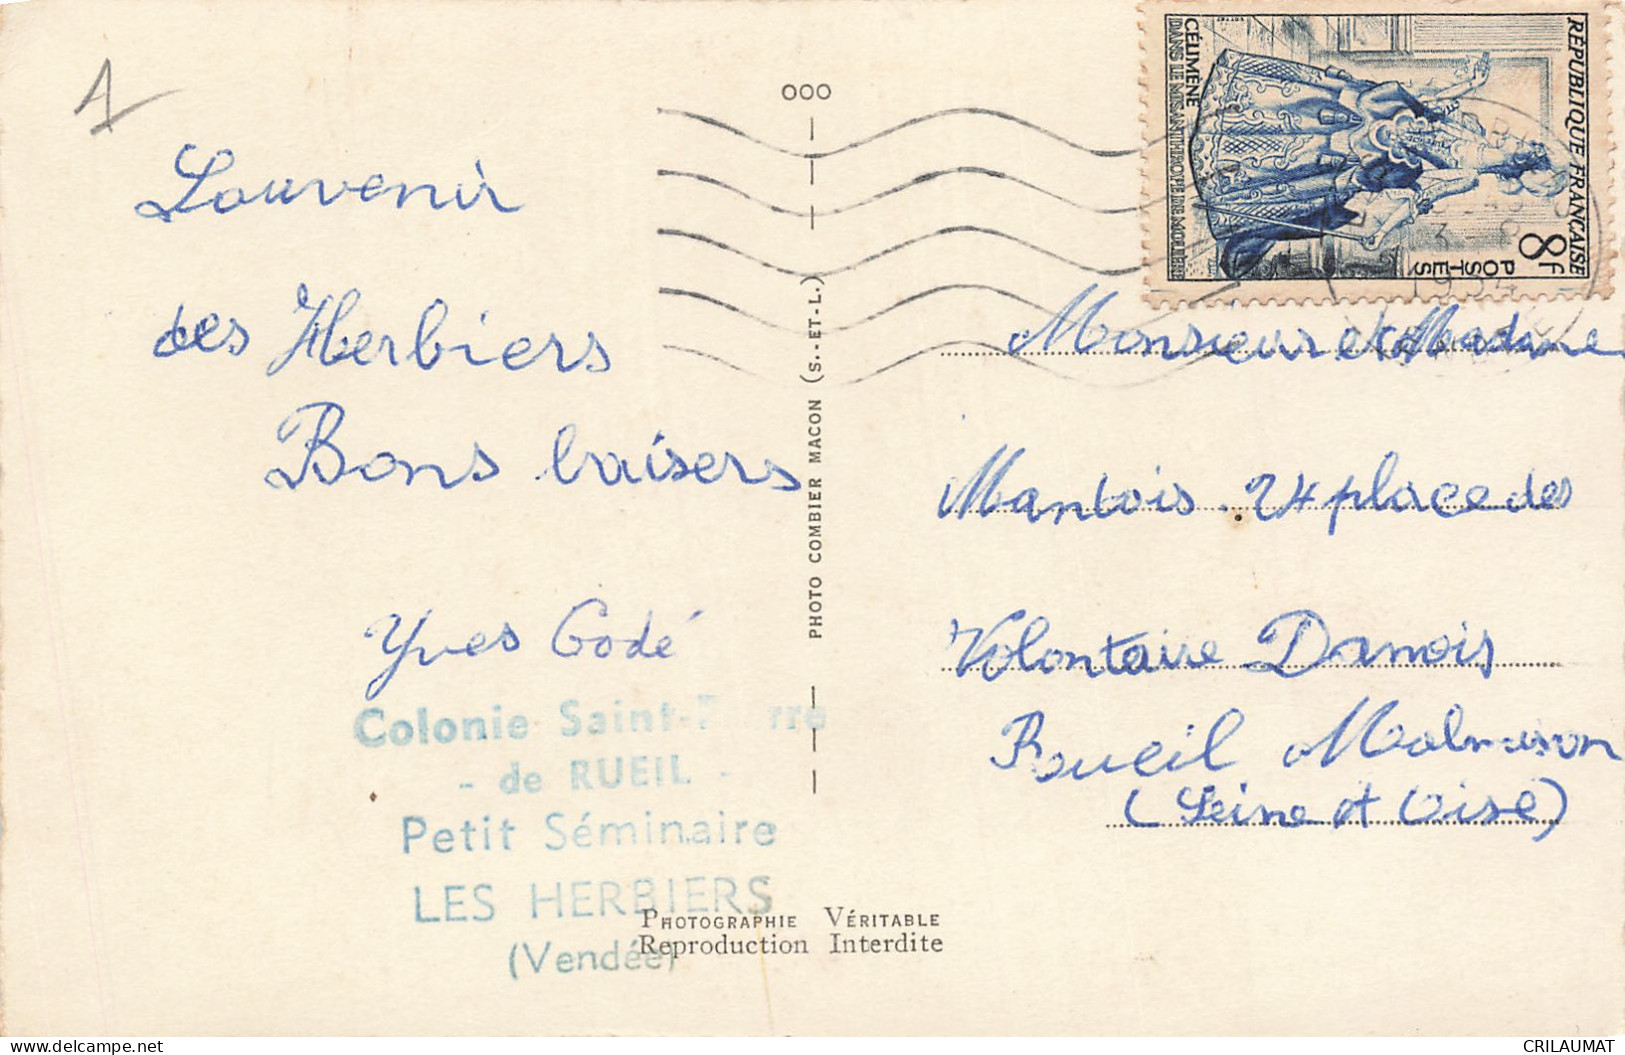 1
Souvenir
des Herbiers
Bons baisers
Yves Godé
Colonie Saint-Pierre
- de RUEIL -
Petit Séminaire
LES HERBIERS
(Vendée)
000
PHOTO COMBIER MACON (S.-ET-L.)
PHOTOGRAPHIE VÉRITABLE
Reproduction Interdite
RÉPUBLIQUE FRANÇAISE
8F
POSTES
CÉLIMÈNE
DANS LE MISANTHROPE DE MOLIÈRE
1954
Monsieur et Madame
Mantois. 24 place des
Volontaire Danois
Rueil Malmaison
(Seine et Oise)
CRILAUMAT